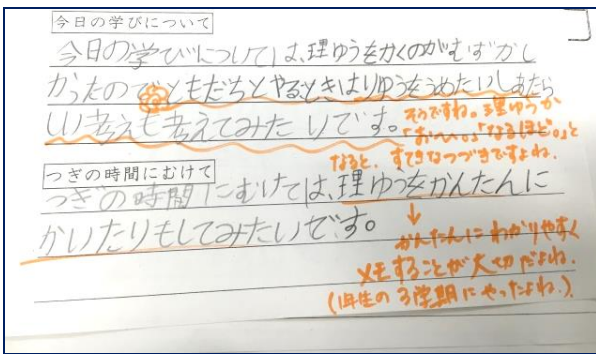 今日の学びについて
今日の学びについては、理ゆうをかくのがむずかし
かったのでともだちとやるときはりゆうをうめたいしあたら
しい考えも考えてみたいです。
そうですね。理ゆうが
「おへ〜。」「なるほど。」と
なると、すてきなつづきですよね。
つぎの時間にむけて
つぎの時間にむけては、理ゆうをかんたんに
かいたりもしてみたいです。
↓
かんたんにわかりやすく
メモすることが大切だよね。
(1年生の3学期にやったよね。)